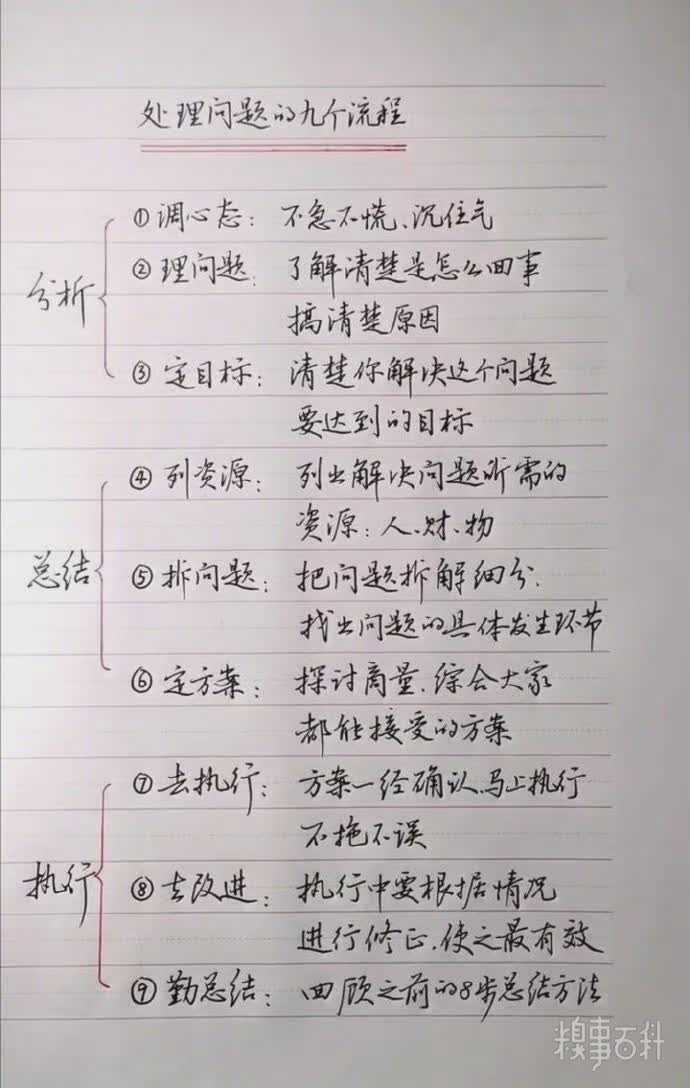 处理问题的九个流程
分析
①调心态：不急不慌、沉住气
②理问题：了解清楚是怎么回事
搞清楚原因
③定目标：清楚你解决这个问题
要达到的目标
总结
④列资源：列出解决问题所需的
资源：人、财、物
⑤拆问题：把问题拆解细分、
找出问题的具体发生环节
⑥定方案：探讨商量、综合大家
都能接受的方案
执行
⑦去执行：方案一经确认、马上执行
不拖不误
⑧去改进：执行中要根据情况
进行修正、使之最有效
⑨勤总结：回顾之前的8步总结方法
糗事百科